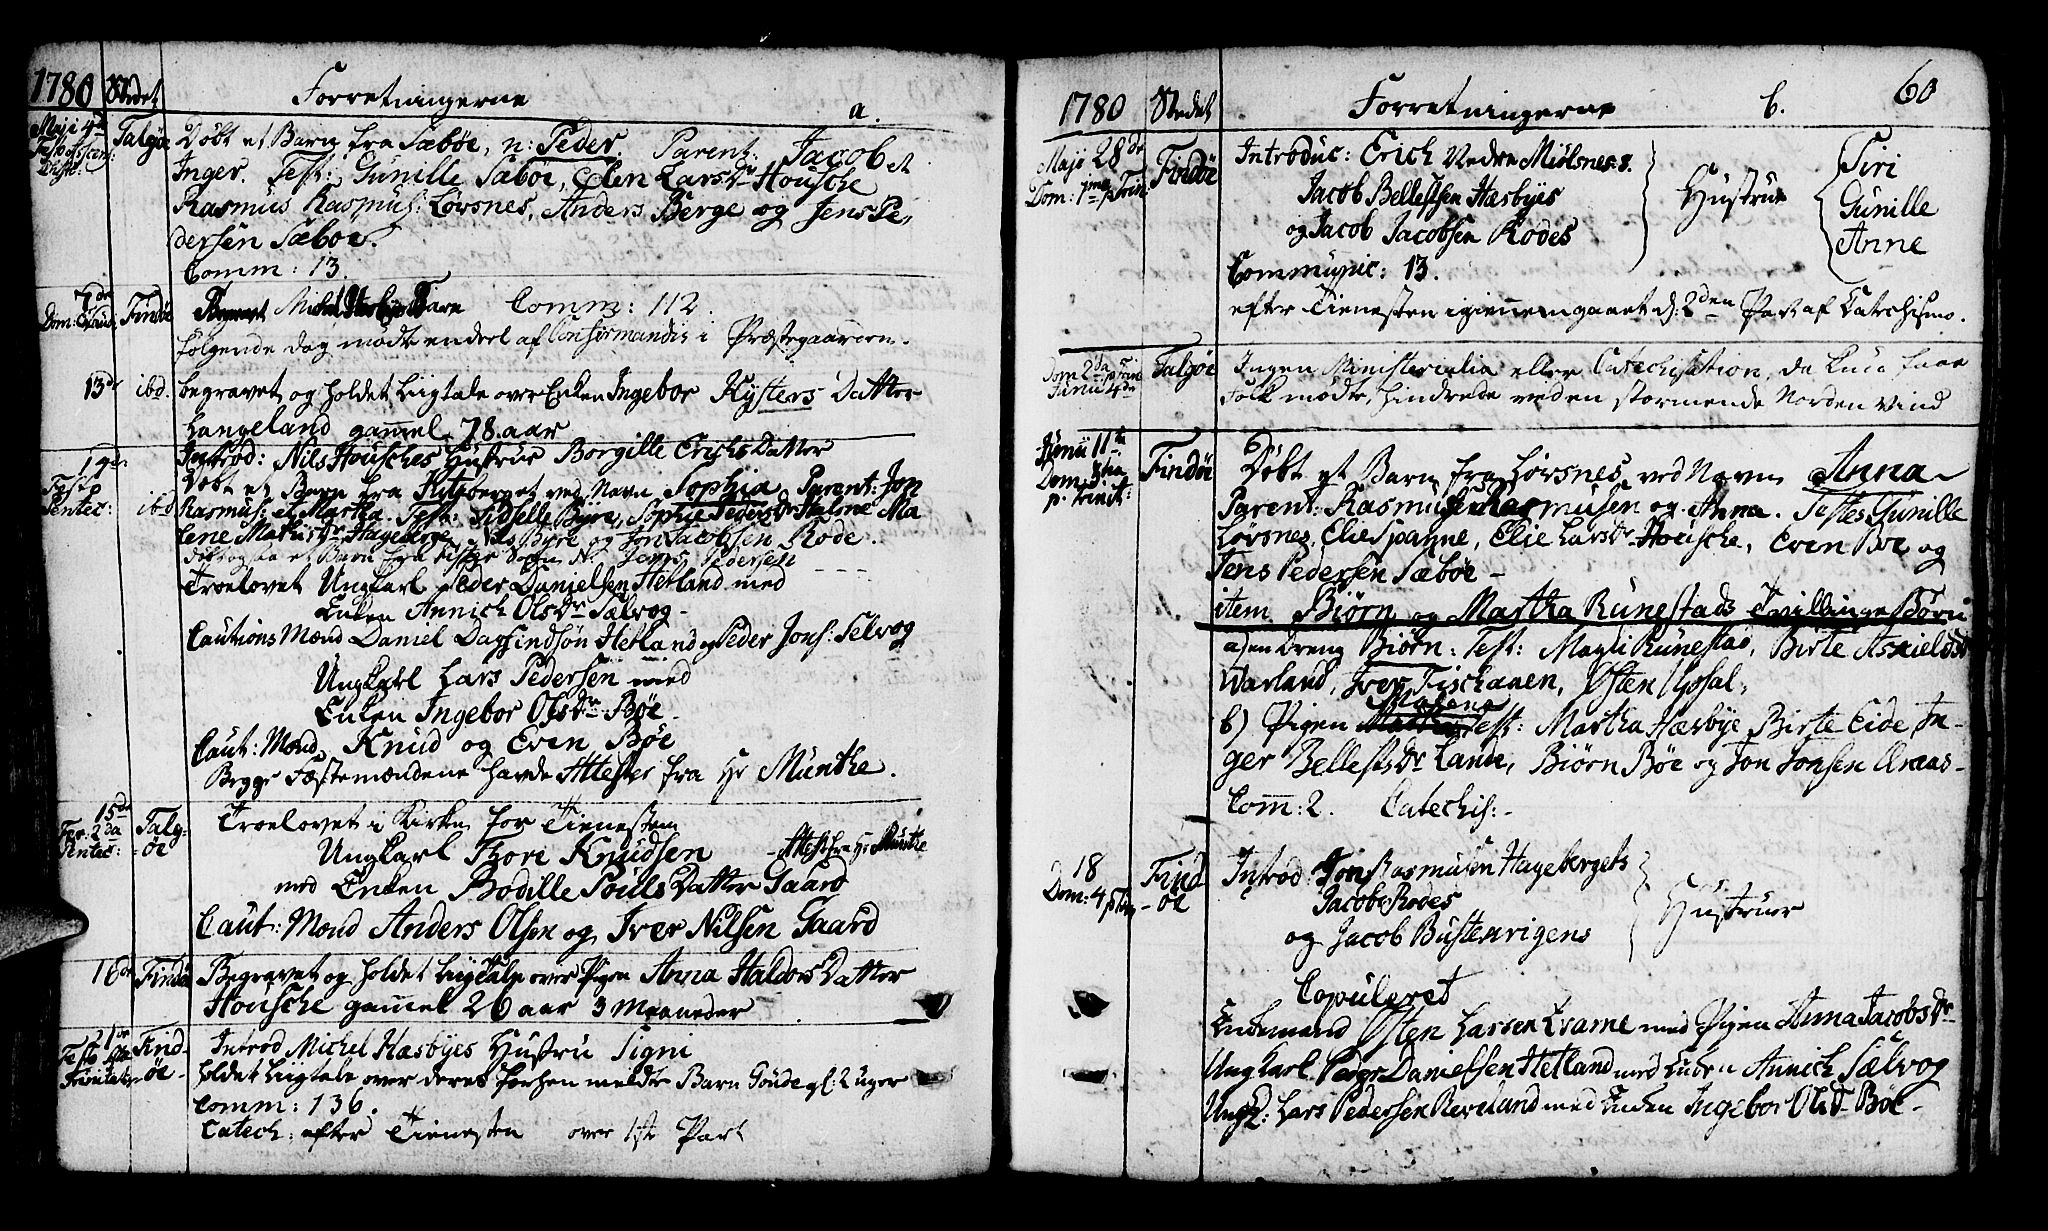 1780 Stedet Forretningerne a.
Maji 4de Talgøe Døbt et Barn fra Sæbøe, n: Peder. Parent: Jacob et
Inger. Test: Gunille Sæbøe, Elen Lars Dr Housche
Rasmus Rasmus: Løvsnes, Anders Berge og Jens Pe-
dersen Sæboe.
Comm: 13.
7de Findøe Barn Comm: 112.
følgende dag mødte endeel af Confirmandis i Præstegaarden.
13de ibd. begravet og holdet Liigtale over Enken Ingebor Datter
Langeland gammel 78 aar
Introd: Nils Housches Hustrue Borgille Erichs Datter
ibd Døbt et Barn fra ved Navn Sophia Parent: Jon
Rasmus: et Martha. Test: Sidselle Byre, Sophie Peders Dr Halsne Ma
lene Hageberge, Nils Byre og Jon Jacobsen Rode.
Troelovet Ungkarl Peder Danielsen Hetland med
Enken Annich Ols Dr Sælvog
Cautions Mænd Daniel Dagfindsøn Hetland og Peder Jons: Selvog
Ungkarl Lars Pedersen med
Enken Ingebor Ols dr Bøe
Caut: Mænd Knud og Even Bøe
Begge Fæstemændene havde Attester fra Hr Munthe.
15de Talg-
Fer: 2da Pentec: øe Troelovet i Kirken for Tienesten
Ungkarl Thore Knudsen Attest fra Hr Munthe
med Enken Bodille Pouls Datter Gaard
Caut: Mænd Anders Olsen og Iver Nilsen Gaard
16de Findø Begravet og holdet Liigtale over Pigen Anna Haldors Datter
Housche gammel 26 aar 3 Maaneder
Find-
øe Introd Michel Hæsbyes Hustru Signi
holdet Liigtale over deres forhen meldte Barn Goude gl: 2 uger
Comm: 136.
Catech: efter Tienesten over 1ste Part
60
1780 Stedet Forretningerne b.
Maji 28de Findøe Introduc: Erich Vedre Miølsnes:
Jacob Bellestsen Hæsbyes
og Jacob Jacobsen Rodes
Hustrue
Siri
Gunille
Anne
Communic: 13.
efter Tienesten igiennemgaaet d: 2den Part af Catechismo.
Dom 2da p Trin
Junii 4de Talgøe Ingen Ministerialia eller Catechisation, da kun faae
Folk mødte, hindrede ved en stormende Norden Vind
Junii 11te
Dom. 3tia
p. Trinit: Findøe Døbt et Barn fra Løvsnes ved Navn Anna
Parent: Rasmus Rasmusen og Anna. Testes Gunille
Løvsnes, Elie Spanne, Elie Lars Dr Housche, Even Bøe og
Jens Pedersen Sæbøe
item Biørn og Martha Runestads Tvillinge Børn
a) en Dreng Biørn: Test: Magli Runestad, Birte Askields Dr
Varland, Iver Fischaaen, Østen
Malene
b) Pigen Test: Martha Hæsbye Birte Eide, In-
ger Bellests Dr Lande, Biørn Bøe og Jon Jonsen Araas-
Comm: 2. Catechis:
18
Dom: 4 p Trin Find
-øe Introd: Jon Rasmusen Hagebergets
Jacob Rodes
og Jacob Bustenrigens
Hustruer
Copuleret
Enkemand Østen Larsen Tvarne med Pigen Anna Jacobs Dr
Ungkarl Peder Danielsen Hetland med Enken Annich Sælvog
Ungk: Lars Pedersen Reveland med Enken Ingebor Ols Dr Bøe